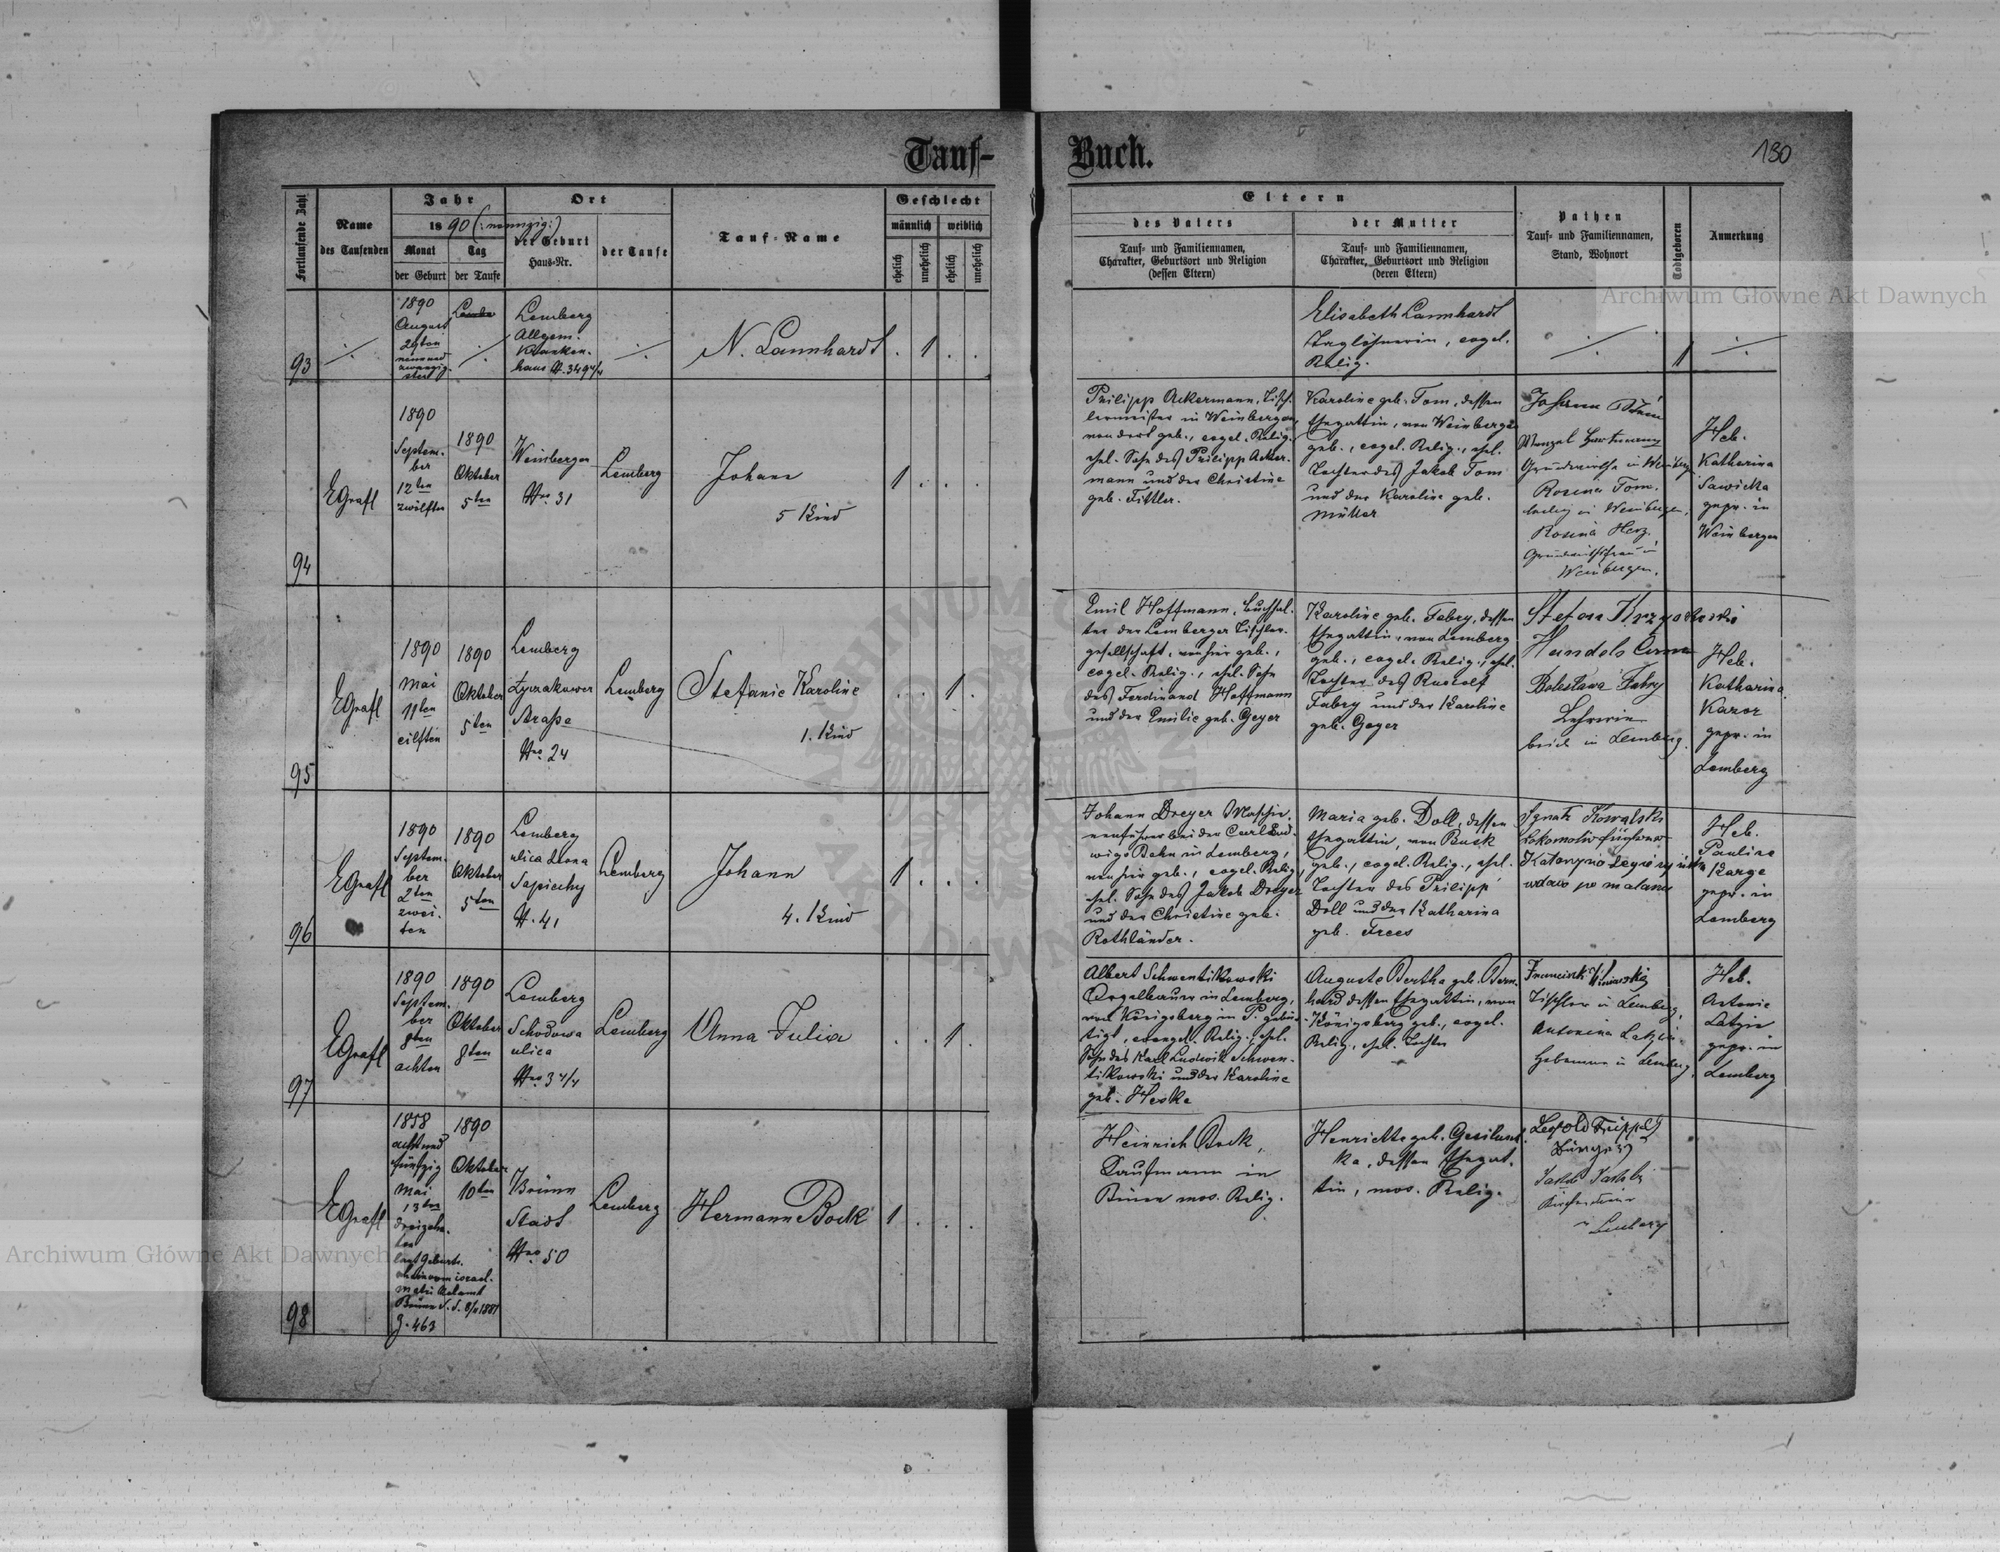 Tauf-
Buch.
130
Fortlaufende Zahl
Name
des Taufenden
Jahr
1890 (:neunzig:)
Monat
der Geburt
Tag
der Taufe
Ort
der Geburt
Haus-Nr.
der Taufe
Tauf-Name
Geschlecht
männlich
weiblich
ehelich
unehelich
ehelich
unehelich
Eltern
des Vaters
Tauf- und Familiennamen,
Charakter, Geburtsort und Religion
(dessen Eltern)
der Mutter
Tauf- und Familiennamen,
Charakter, Geburtsort und Religion
(deren Eltern)
Pathen
Tauf- und Familiennamen,
Stand, Wohnort
Todtgeboren
Anmerkung
93
1890
August
29ten
neunund
zwanzig-
sten
Lemberg
Allgem.
Kranken-
haus
N. Lannhardt
1
Elisabeth Lannhardt
Taglöhnerin, evgel.
Relig.
1
94
EGrafl
1890
Septem-
ber
12ten
zwölften
1890
Oktober
5ten
Weinbergen
Nro 31
Lemberg
Johann
5 Kind
1
Philipp Ackermann, Tisch-
lermeister in Weinbergen,
von dort geb., evgel. Relig.
ehel. Sohn des Philipp Acker-
mann und der Christine
geb. Tittler.
Karoline geb. Tom, dessen
Ehegattin, von Weinbergen
geb., evgel. Relig., ehel.
Tochter des Jakob Tom
und der Karoline geb.
Müller
Johann
Wenzel Hartmann
Grundwirthe in Weinbergen
Rosina Tom.
ledig in Weinbergen,
Rosina Herz
Grundwirthsfrau in
Weinbergen.
Heb.
Katherina
Sawicka
gepr. in
Weinbergen
95
EGrafl
1890
Mai
11ten
eilften
1890
Oktober
5ten
Lemberg
Łyczakower
Straße
Nro 24
Lemberg
Stefanie Karoline
1. Kind
1
Emil Hoffmann, Buchhal-
ter der Lemberger Tischler-
gesellschaft, von hier geb.,
evgel. Relig., ehel. Sohn
des Ferdinand Hoffmann
und der Emilie geb. Geyer
Karoline geb. Fabry, dessen
Ehegattin, von Lemberg
geb., evgel. Relig., ehel.
Tochter des Rudolf
Fabry und der Karoline
geb. Geyer
Stefan
Anna
Bolesława Fabry
Lehrerin
beide in Lemberg.
Heb.
Katharina
Kazor
gepr. in
Lemberg
96
EGrafl
1890
Septem-
ber
2ten
zwei-
ten
1890
Oktober
5ten
Lemberg
ulica Leona
Sapiehy
N. 41
Lemberg
Johann
4. Kind
1
Johann Dreyer Maschi-
nenführer bei der Carl Lud-
wigs Bahn in Lemberg,
von hier geb., evgel. Relig.
ehel. Sohn des Jakob Dreyer
und der Christine geb.
Rothländer.
Maria geb. Doll, dessen
Ehegattin, von
geb., evgel. Relig., ehel.
Tochter des Philipp
Doll und der Katharina
geb. Frees
Ignatz Kowalski
Lokomotivführer
Katarzyna
wdowa po malarzu
Heb.
Pauline
Karge
gepr. in
Lemberg
97
EGrafl
1890
Septem-
ber
8ten
achten
1890
Oktober
8ten
Lemberg
Schodowa
ulica
Nro 3 4/4
Lemberg
Anna Julia
1
Albert Schwentikowski
Orgelbauer in Lemberg,
von Königsberg in P. gebür-
tigt, evangel. Relig., ehel.
Sohn des Karl Ludwik Schwen-
tikowski und der Karoline
geb. Heske
Auguste Bertha geb. Bern-
hard dessen Ehegattin, von
Königsberg geb., evgel.
Relig., ehel. Tochter
Franciszek Winiarski
Tischler in Lemberg,
Antonina Latzin
Hebamme in Lemberg.
Heb.
Antonie
Latzin
gepr. in
Lemberg
98
EGrafl
1858
acht und
fünfzig
Mai
13ten
dreizehn-
ten
laut Geburts-
schein vom israel.
Matrikelamt
Brünn
Z. 463
1890
Oktober
10ten
Brünn
Stadt
Nro 50
Lemberg
Hermann Bock
1
Heinrich Bock,
Kaufmann in
Brünn mos. Relig.
Henriette geb.
dessen Ehegat-
tin, mos. Relig.
Leopold
Jakob
Kirchendiener
in Lemberg
Archiwum Główne Akt Dawnych
Archiwum Główne Akt Dawnych